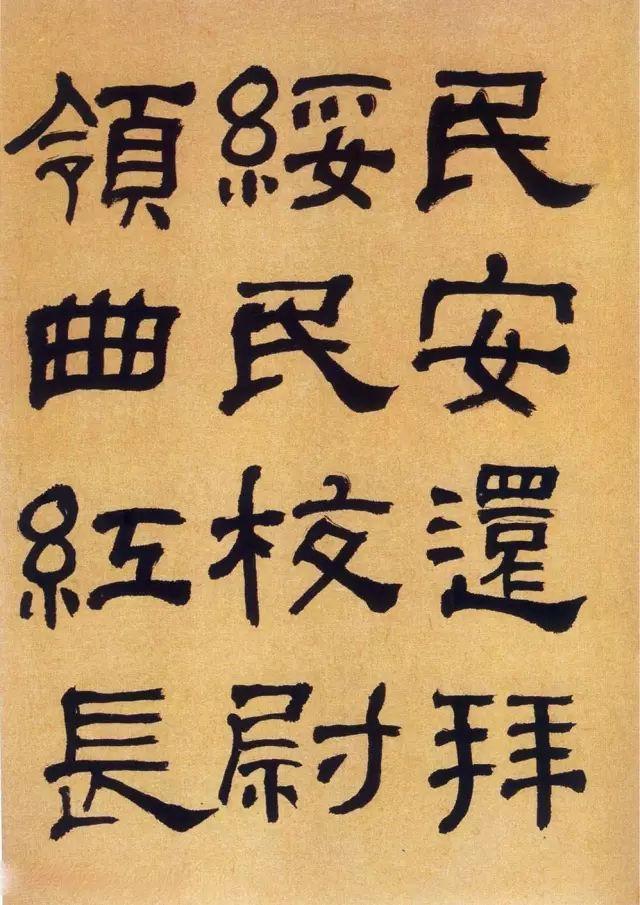 民安還拜
綏民校尉
領曲紅長